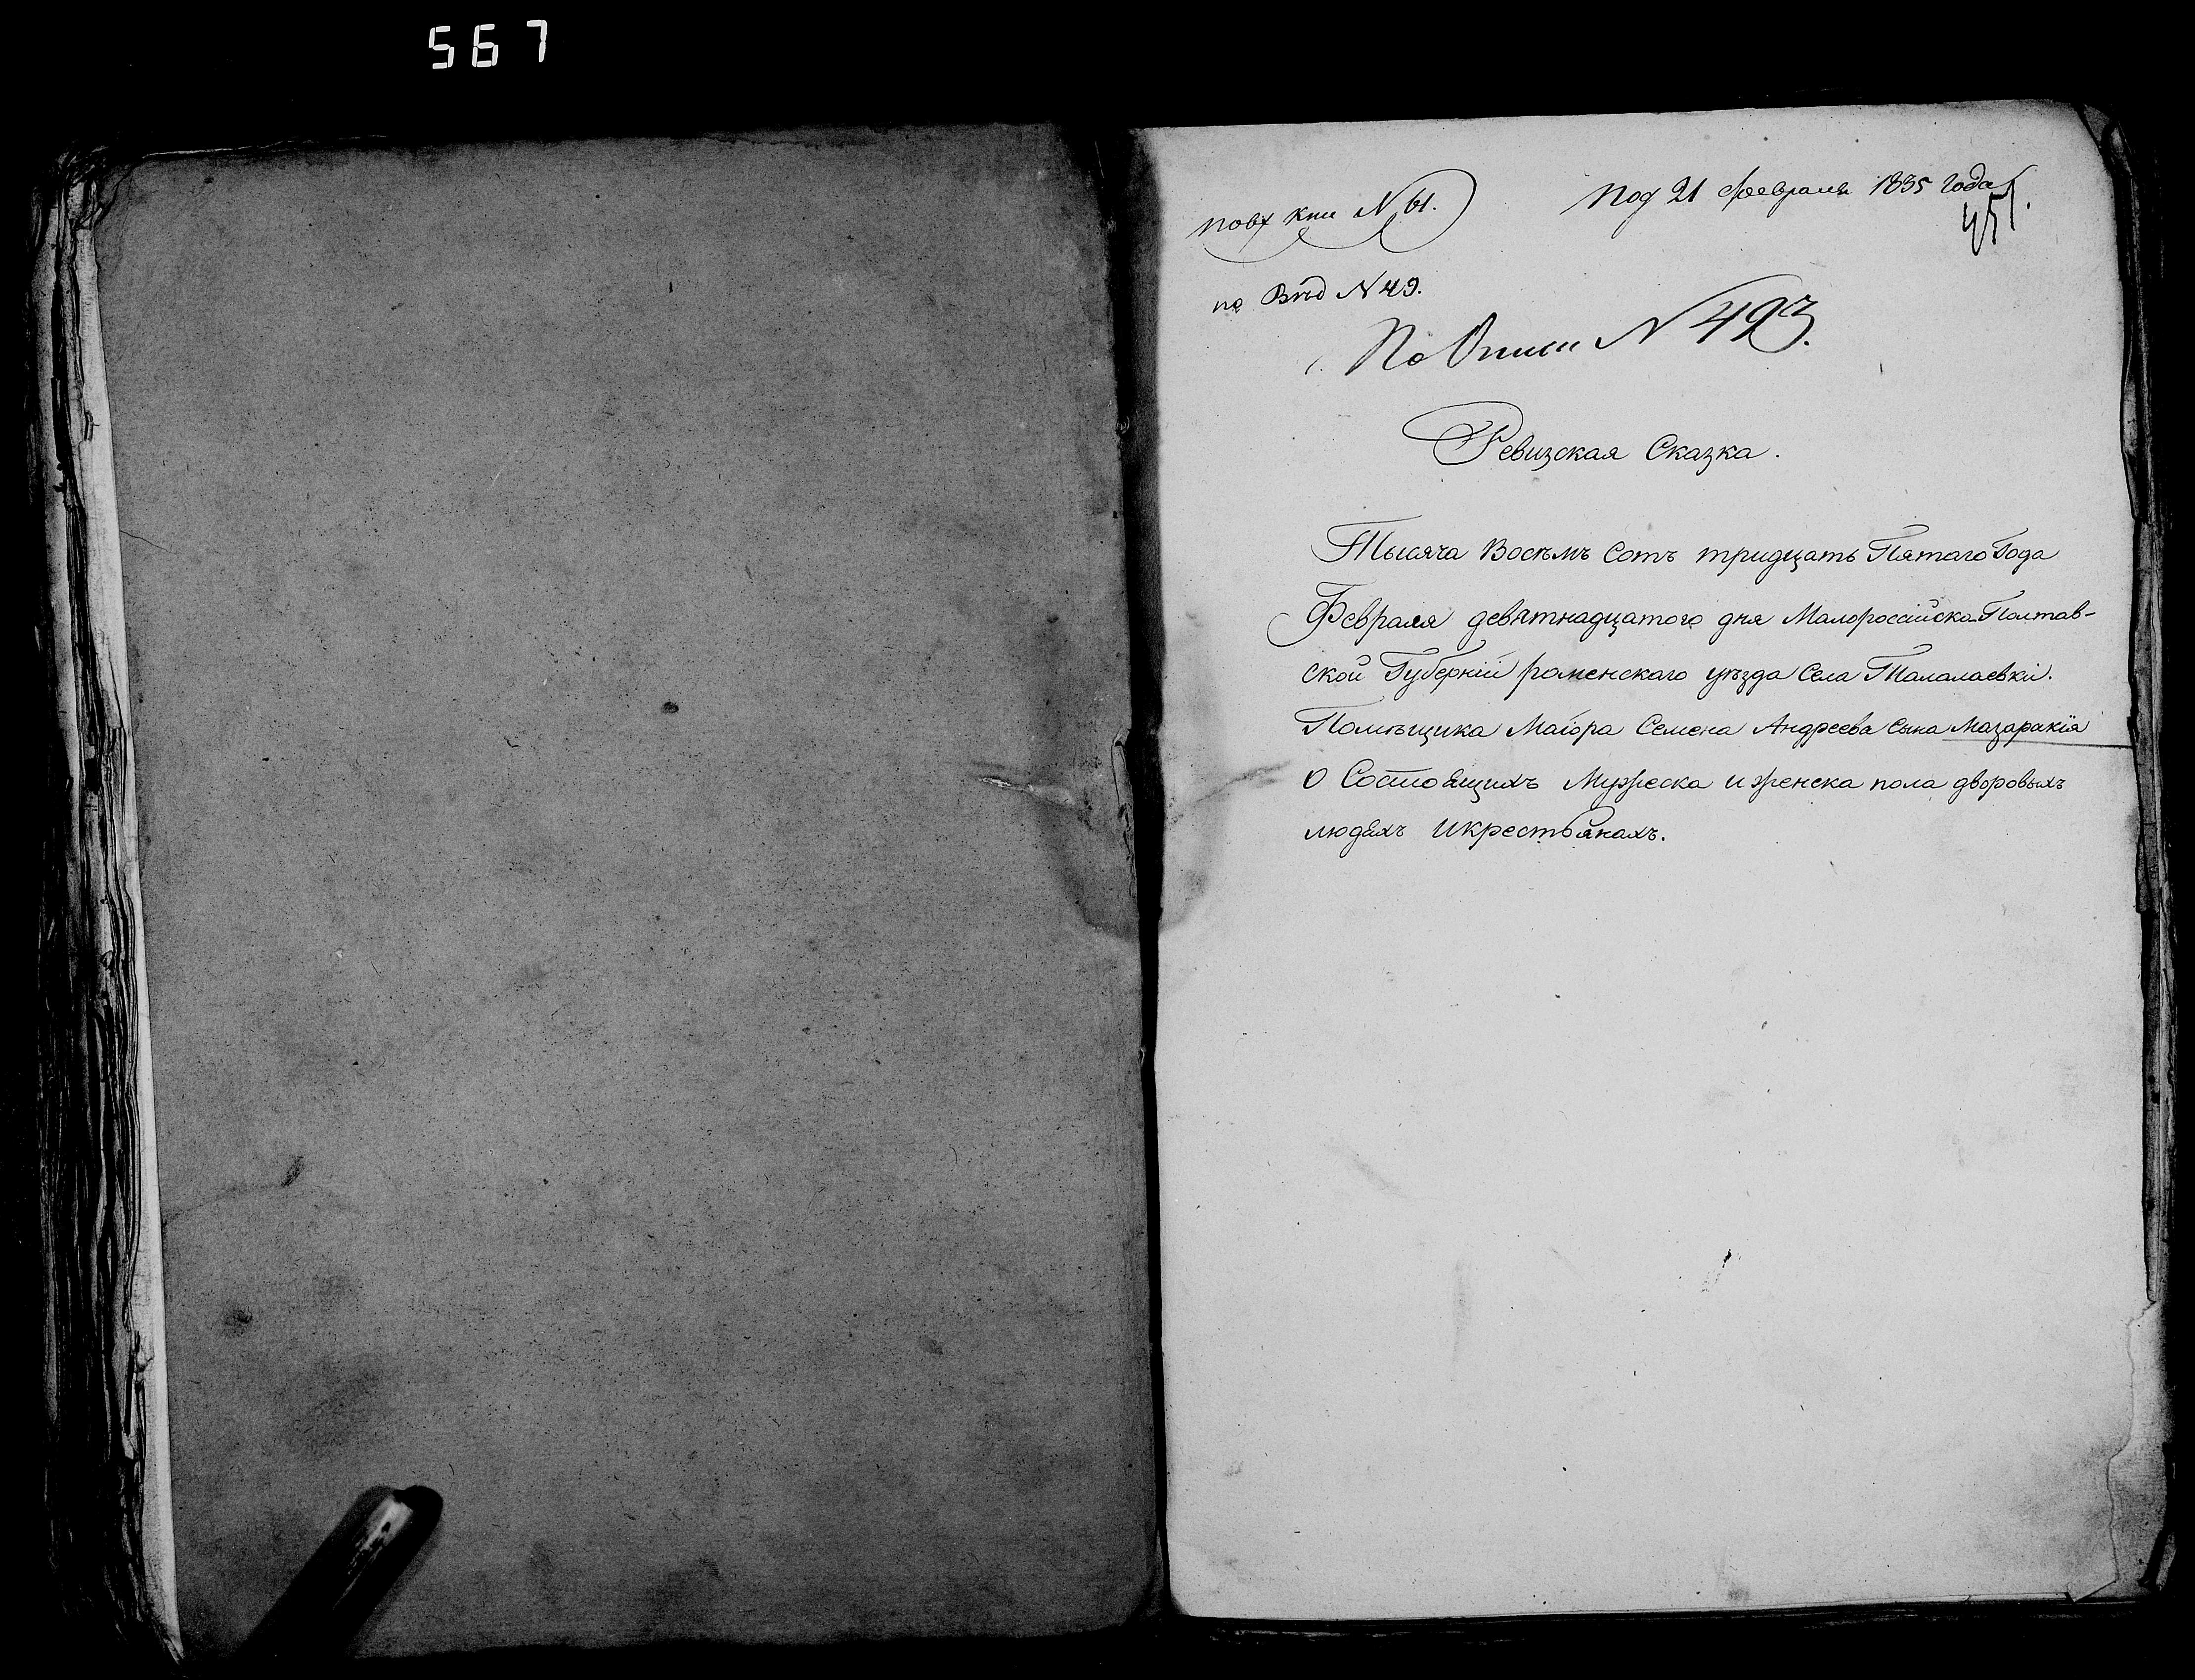 567
Под 21 февраля 1835 года
по вх кни N 61.
451.
по Вѣд N 49.
По Описи N 493.
Ревизская Сказка.
Тысяча Восѣмъ Сотъ тридцать Пятаго Года
Февраля девятнадцатого дня Малоросаійска Полтав-
ской Губерніи роменскаго уѣзда Села Талалаевкі.
Помѣщика Маіора Семена Андреева Сына Мазаракія
О Состоящихъ Мужеска и женска пола дворовыхъ
людяхъ Икрестьянахъ.